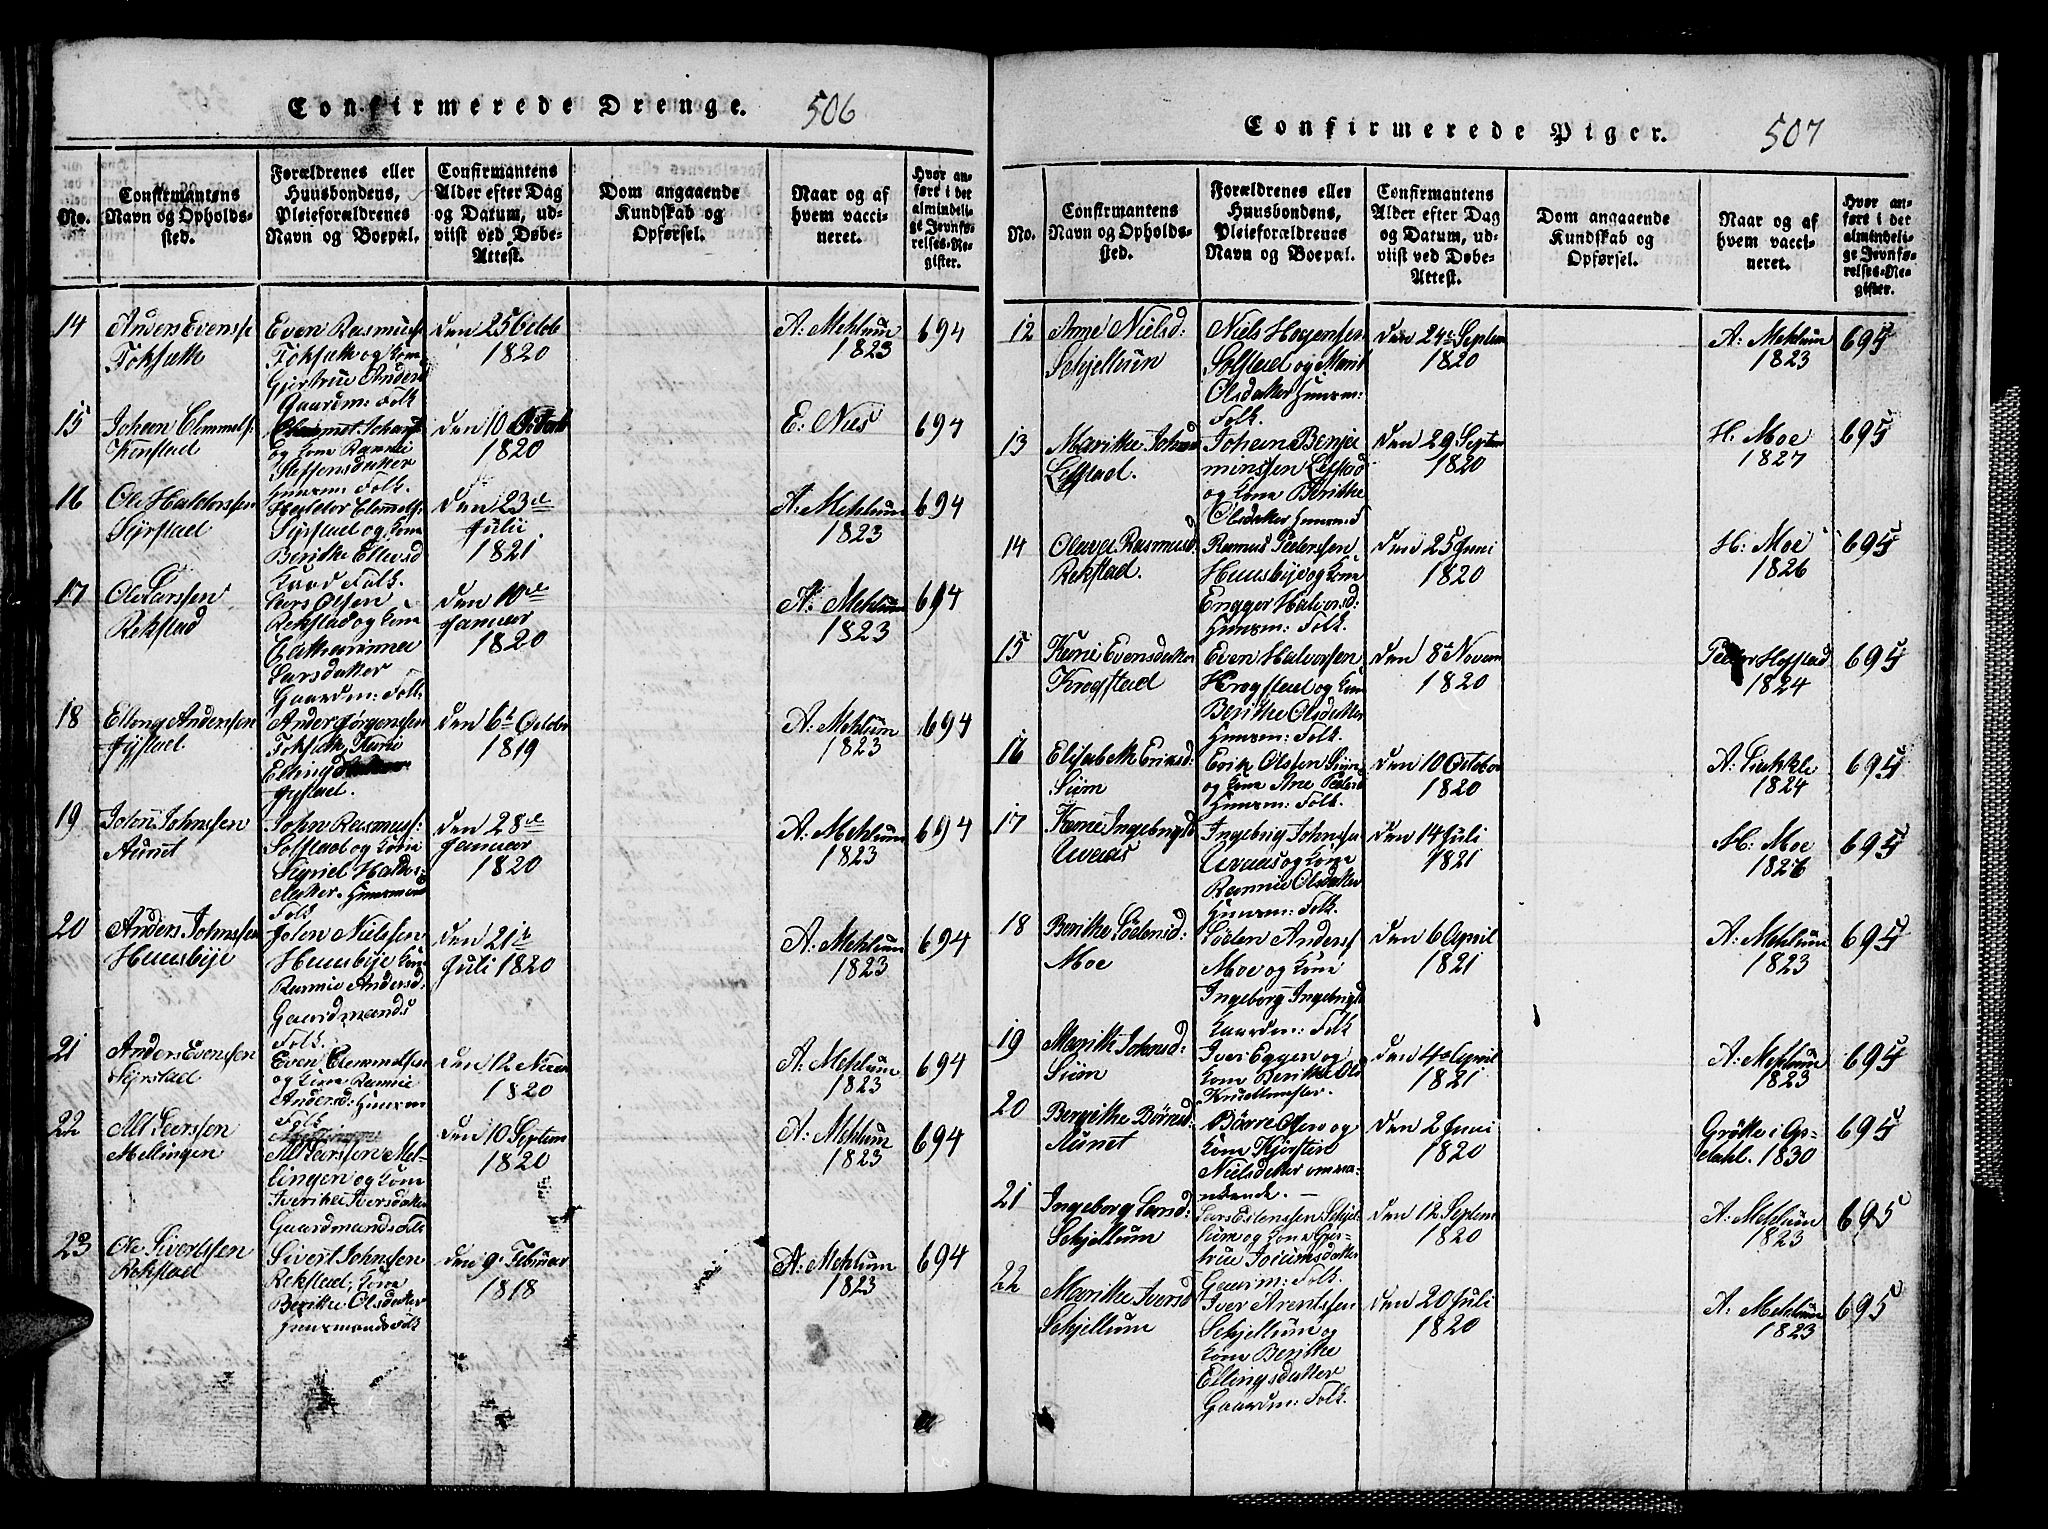 Confirmerede Drenge.
506
No.
Confirmantens Navn og Opholds-
sted.
Forældrenes eller
Huusbondens,
Pleieforældrenes
Navn og Boepæl.
Confirmantens
Alder efter Dag
og Datum, ud-
viist ved Døbe-
Attest.
Dom angaaende
Kundskab og
Opførsel.
Naar og af
hvem vacci-
neret.
Hvor an-
ført i det
almindeli-
ge Jevnfø-
relses-Re-
gister.
14
Anders Evenss
Even Rasmuss:
den 25 Octob
1820
A: Mehlum
1823
694
Gaardm: Folk
15
Johan Clemmets:
og Kone
Steffensdatter
Huusm: Folk.
1820
E. Nies
694
16
Ole Haldorssen
Syrstad
Haldor Clemmets:
Syrstad og Kone
Berithe
Folk.
den 23de
Julii
1821
A: Mehlum
1823
694
17
Ole Larssen
Rekstad
Lars Olsen
Rekstad og Kone
Catharinna
Larsdatter
Gaardm: Folk
den 10de
Januar
1820
A: Mehlum
1823
694
18
Elling Anderssen
Anders Jørgenssen
den 6te October
1819
A: Mehlum
1823
694
19
John Johnssen
Aunet
John Rasmuss:
Solstad og Kone
Sigriel Haldors-
datter. Huusmand
Folk
den 28de
Januar
1820
A: Mehlum
1823
694
20
Anders Johnssen
Huusbye
John Nielssen
Huusbye Kone
Andersd:
Gaardmands
Folk.
den 21de
Juli 1820
A: Mehlum
1823
694
21
Anders Evenssen
Syrstad
Even Clemmetsen
og Kone
Andersd: Huusm
Folk
den 12
1820
A: Mehlum
1823
694
22
Mellingen
Mel-
lingen og Kone
Iversdatter
Gaardmands Folk
den 10 Septem
1820
A: Mehlum
1823
694
23
Ole Sivertssen
Rekstad
Sivert Johnssen
Rekstad, Kone
Berithe Olsdatter
Huusmands Folk
den 9de Februar
1818
A: Mehlum
1823
694
Confirmerede Piger.
507
No.
Confirmantens
Navn og Opholds-
sted.
Forældrenes eller
Huusbondens,
Pleieforældrenes
Navn og Boepæl.
Confirmantens
Alder efter Dag
og Datum, ud-
viist ved Døbe-
Attest.
Dom angaaende
Kundskab og
Opførsel.
Naar og af
hvem vacci-
neret.
Hvor an-
ført i det
almindeli-
ge Jevnfø-
relses-Re-
gister.
12
Ane Nielsd:
Schjellum
Niels
Solstad og Marit
Olsdatter Huusm:
Folk.
den 24de Septem
1820
A: Mehlum
1823
695
13
Marithe
Johan Benja
minssen
og Kone Berithe
Olsdatter Huusm: F
den 29 Septem
1820
H. Moe
1827
695
14
Rasmusd:
Rekstad.
Rasmus Pederssen
Huusbye og Kone
Halvorsd:
Huusm: Folk.
den 25 Juni
1820
H: Moe
1826
695
15
Evensdatter
Krogstad
Even Halvorsen
Krogstad og Kone
Berithe Olsdatter
Huusm: Folk.
den 8de Novem
1820
Peder Hofstad
1824
695
16
Elisabeth Eriksd:
Siøm
Erik Olssen Siøm
og Kone Ane
Huusm: Folk.
den 10 October
1820
A:
1824
695
17
Ingebrigtsd
Ingebrig Johnssen
og Kone
Olsdatter
Huusm: Folk.
den 14 Juli
1821
H: Moe
1826
695
18
Berithe
Moe
Anderss
Moe og Kone
Ingeborg Ingebrigtsd
Gaardm: Folk
den 6 April
1821
A: Mehlum
1823
695
19
Marith Johnsd:
Siøm
Iver Eggen og
Kone Berithe Ols
den 4de April
1821
A: Mehlum
1823
695
20
Aunet
Børre Olsen og
Kone Kjersten
Nielsdatter omva-
nkende.
den 2 Juni
1820
Grötte i Op-
dahl. 1830
695
21
Ingeborg Larsd:
Schjellum
Lars Schjel
lum og Kone Gjer-
true
Gaardm: Folk.
den 12 Septem
1820
A: Mehlum
1823
695
22
Marithe Iversd
Schjellum
Iver Arentssen
Schjellum og
Kone Berithe
Ellingsdatter
Gaardm: Folk.
den 20 Juli
1820
A. Mehlum
1823
695